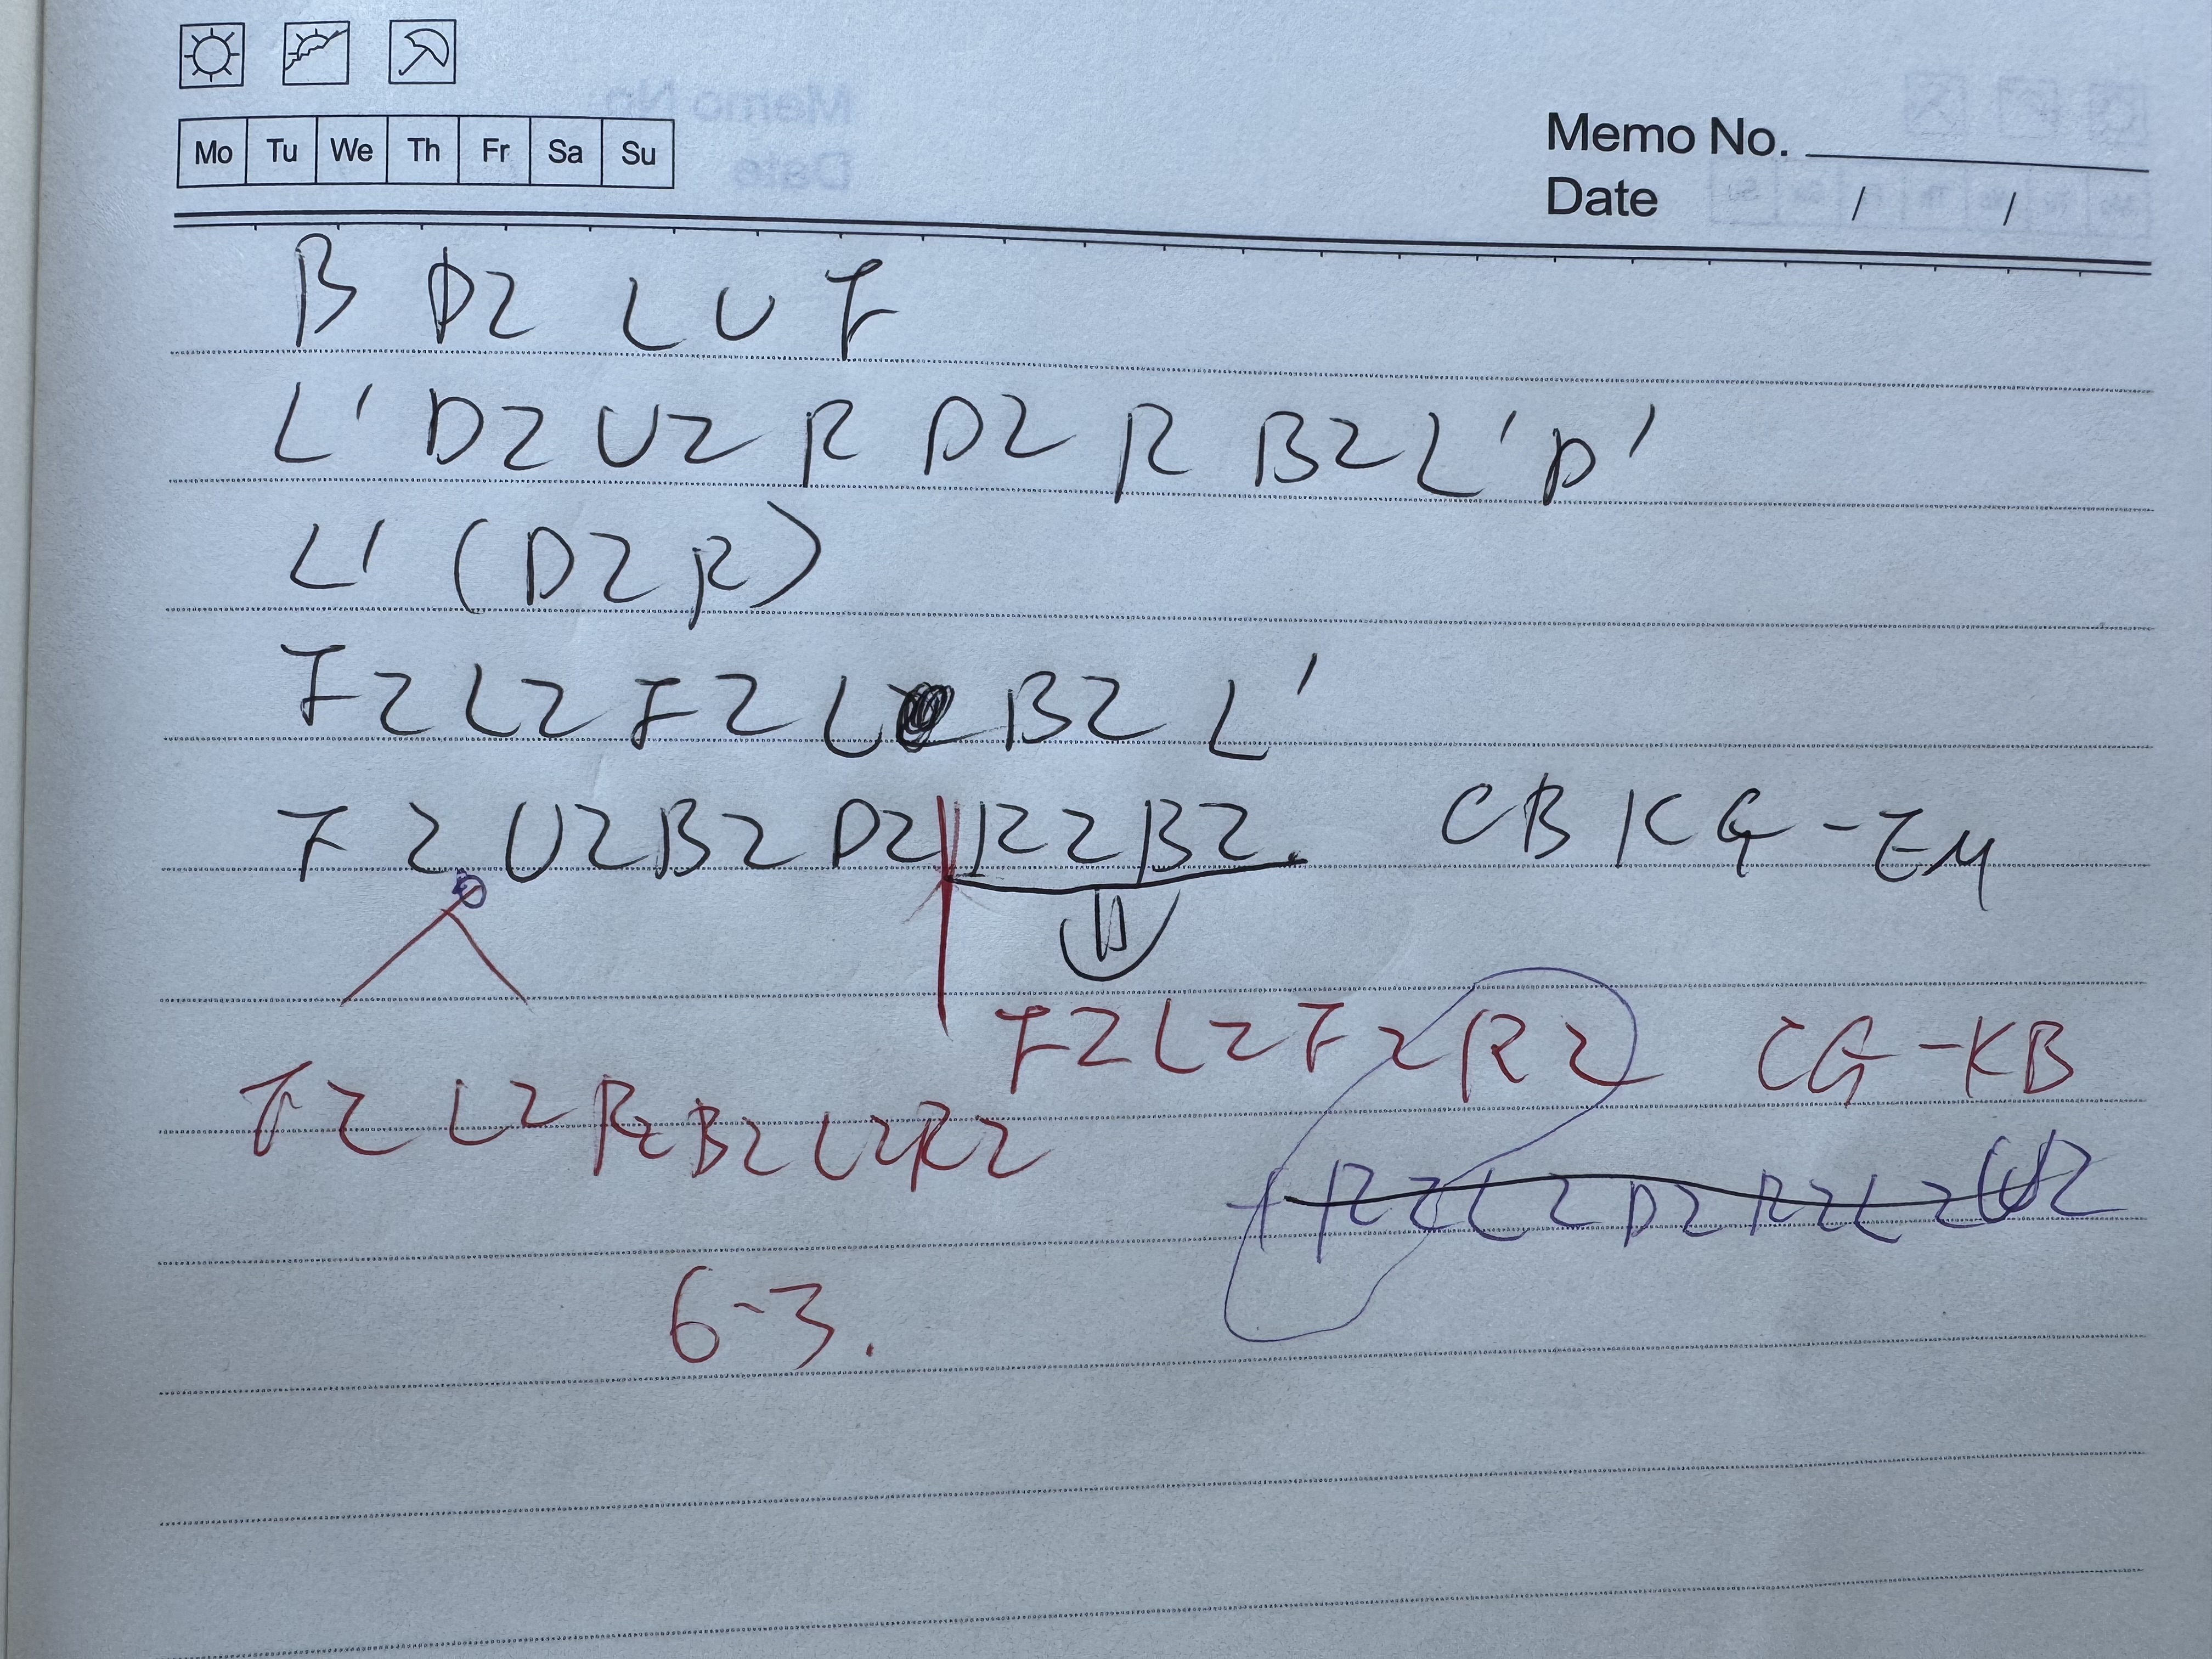 Mo Tu We Th Fr Sa Su
Memo No.
Date / /
B D2 L U F
L' D2 U2 R D2 R B2 L' D'
L' (D2 R)
F2 L2 F2 L B2 L'
F2 U2 B2 D2 R2 B2. CBKG-EM
F2 L2 F2 R2 CG-KB
F2 L2 R2 B2 L2 R2
R2 L2 D2 R2 L2 U2
6-3.